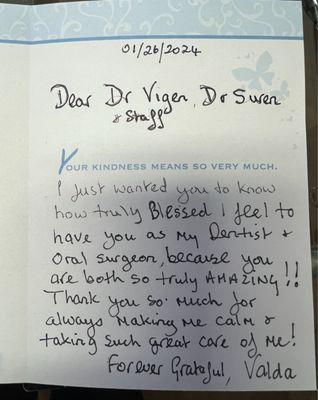 01/26/2024
Dear Dr Vigen, Dr Suren
& Staff
YOUR KINDNESS MEANS SO VERY MUCH.
I Just wanted you to know
how truly Blessed I feel to
have you as my Dentist &
Oral surgeon, because you
are both so truly AMAZING!!
Thank you so much for
always making me calm &
taking such great care of me!
Forever Grateful, Valda